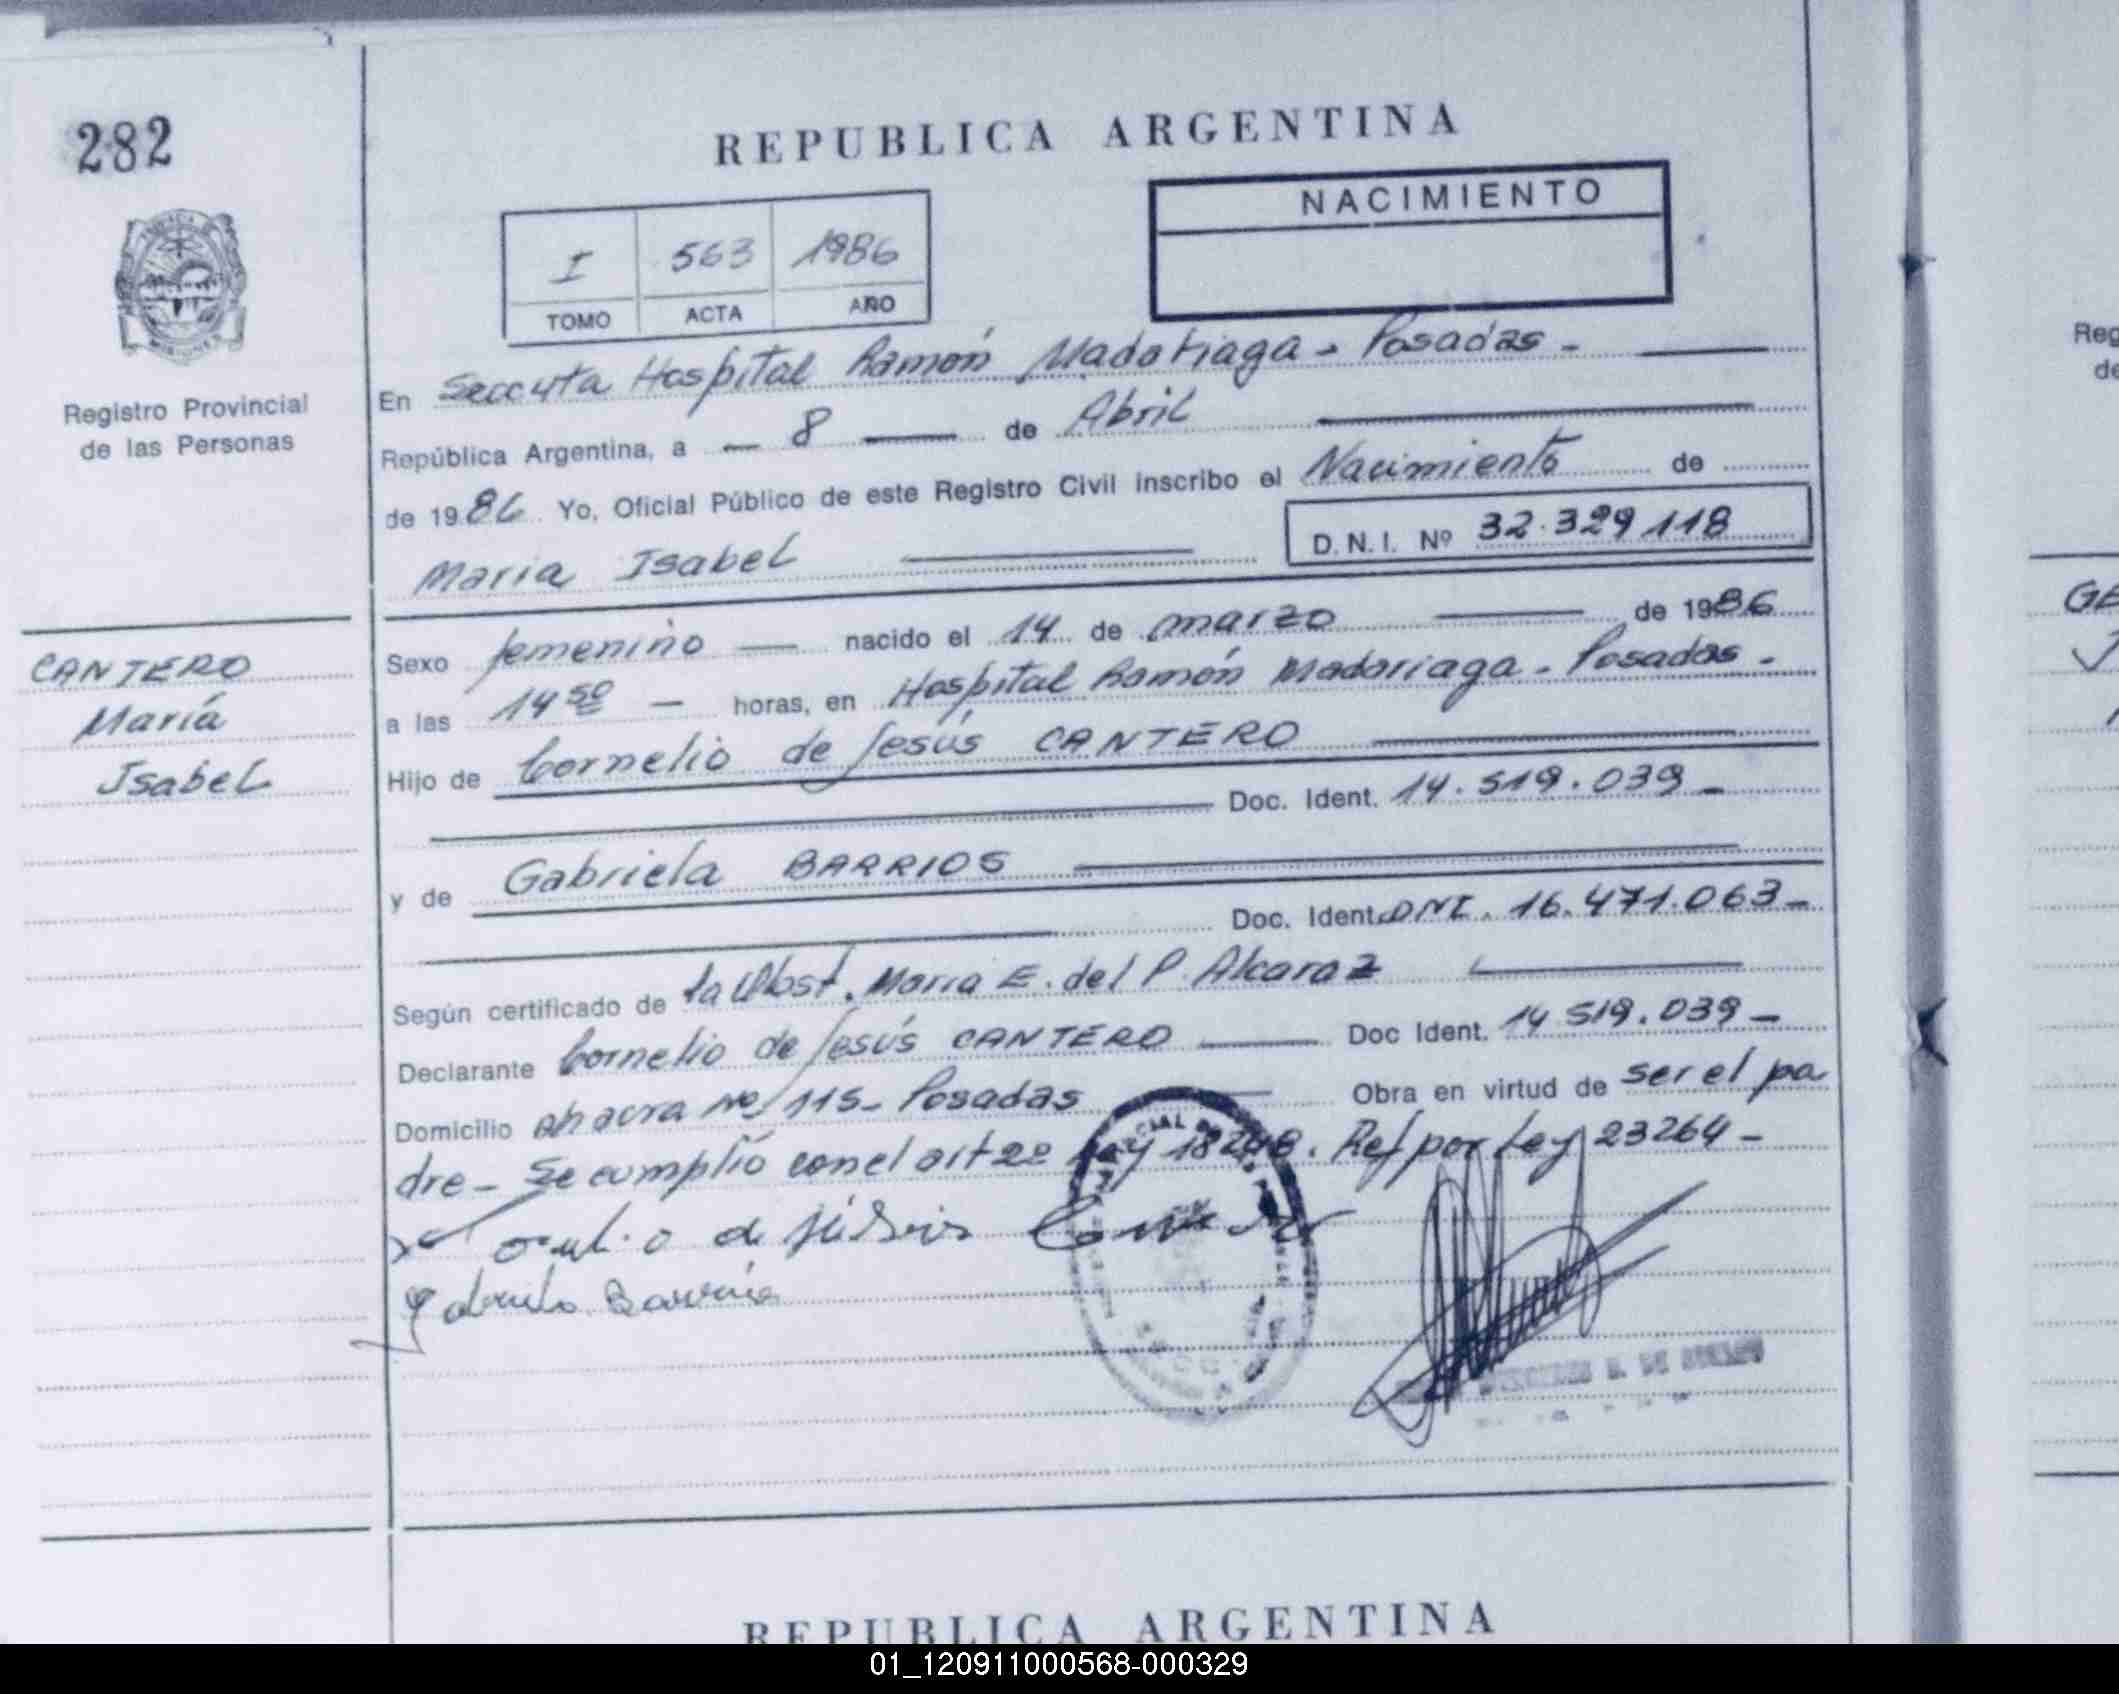 282
REPUBLICA ARGENTINA
NACIMIENTO
I 563 1986
TOMO ACTA AÑO
Registro Provincial
de las Personas
En Seccuta Hospital Ramón Madariaga - Posadas -
República Argentina, a - 8 de Abril
de 1986 Yo, Oficial Público de este Registro Civil inscribo el Nacimiento de
Maria Isabel D.N.I. Nº 32.329.118
CANTERO
María
Isabel
Sexo femenino nacido el 14 de marzo de 1986
a las 14 50 - horas, en Hospital Ramón Madariaga - Posadas -
Hijo de Cornelio de Jesús CANTERO
Doc. Ident. 14.519.039 -
y de Gabriela BARRIOS
Doc. Ident. DNI. 16.471.063 -
Según certificado de la Obst. Maria E. del P. Alcaraz
Declarante Cornelio de Jesús CANTERO Doc Ident. 14 519.039 -
Domicilio chacra Nº 115 - Posadas Obra en virtud de ser el pa
dre - Se cumplió con el art 2º Ley 18248. Ref por Ley 23264 -
Gabriela Barrios
REPUBLICA ARGENTINA
Reg
de
GE
01_120911000568-000329